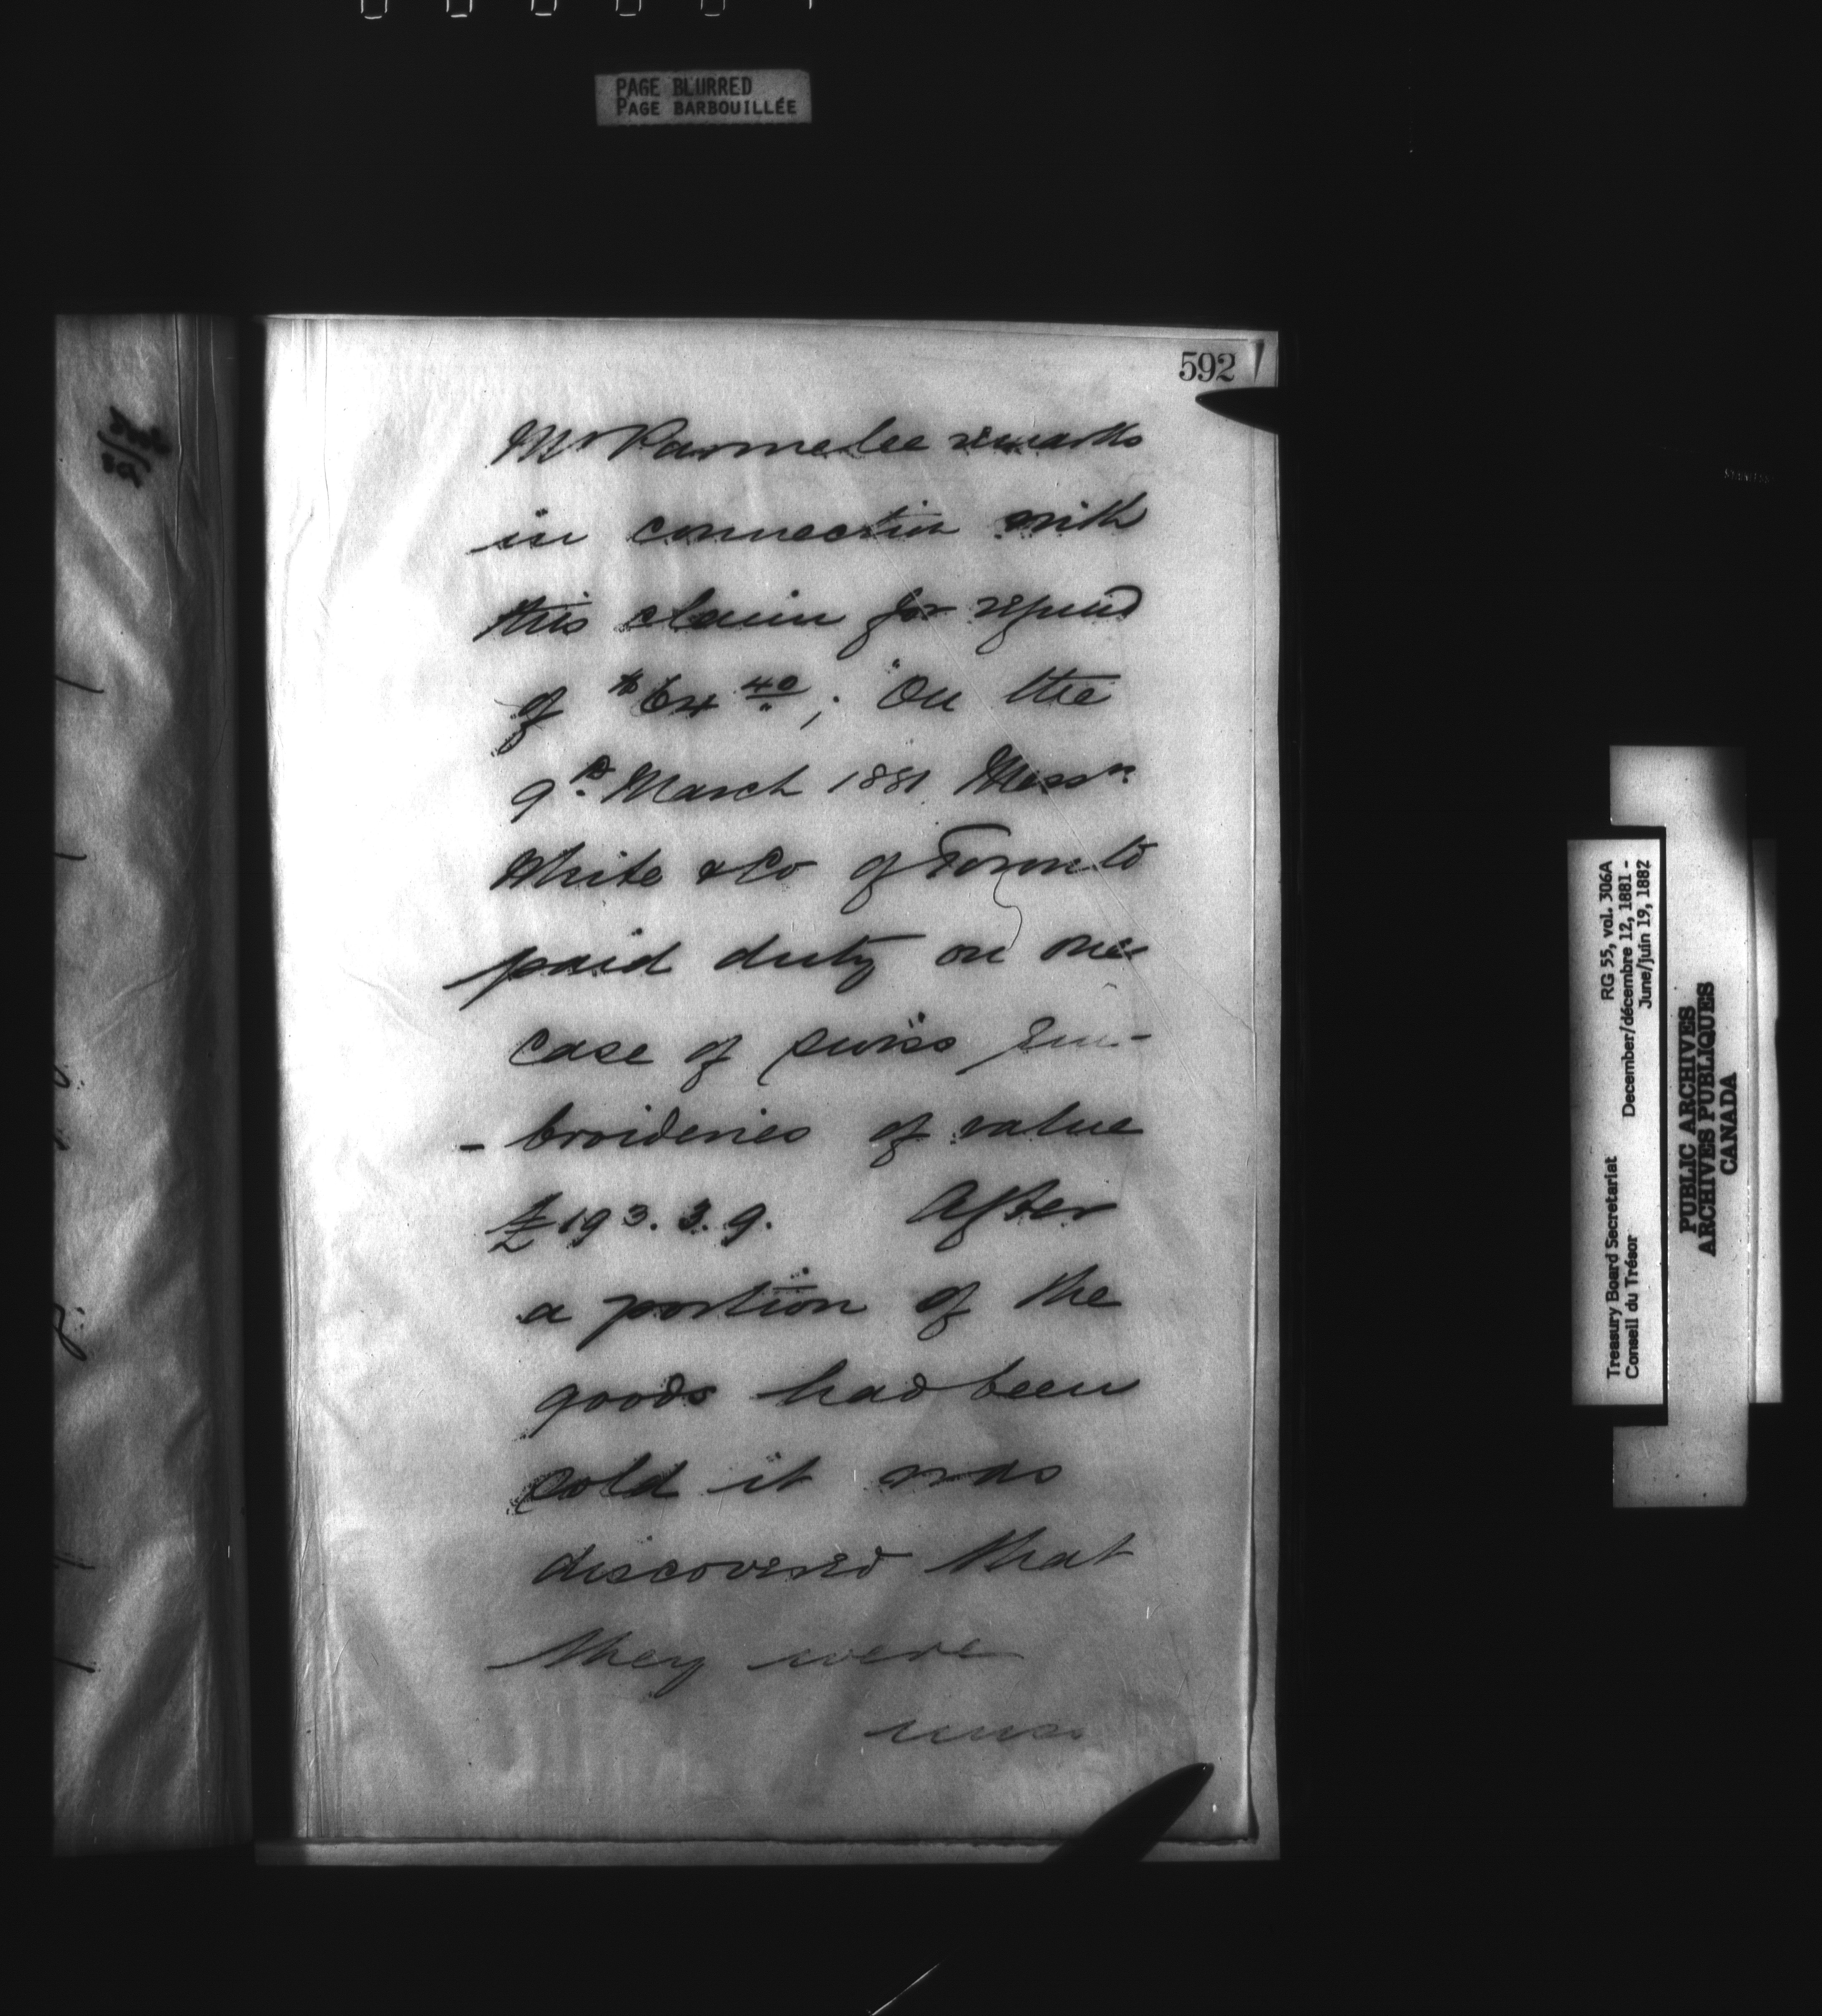 PAGE BLURRED
PAGE BARBOUILLÉE
592
Mr Parmelee remarks
in connection with
this claim for refund
of $64 40; "On the
9th March 1881 Messrs
White & Co of Toronto
paid duty on one
case of swiss Em-
- broideries of value
£193.3.9. After
a portion of the
goods had been
sold it was
discovered that
they were
Treasury Board Secretariat RG 55, vol. 306A
Conseil du Trésor December/décembre 12, 1881 -
June/juin 19, 1882
PUBLIC ARCHIVES
ARCHIVES PUBLIQUES
CANADA